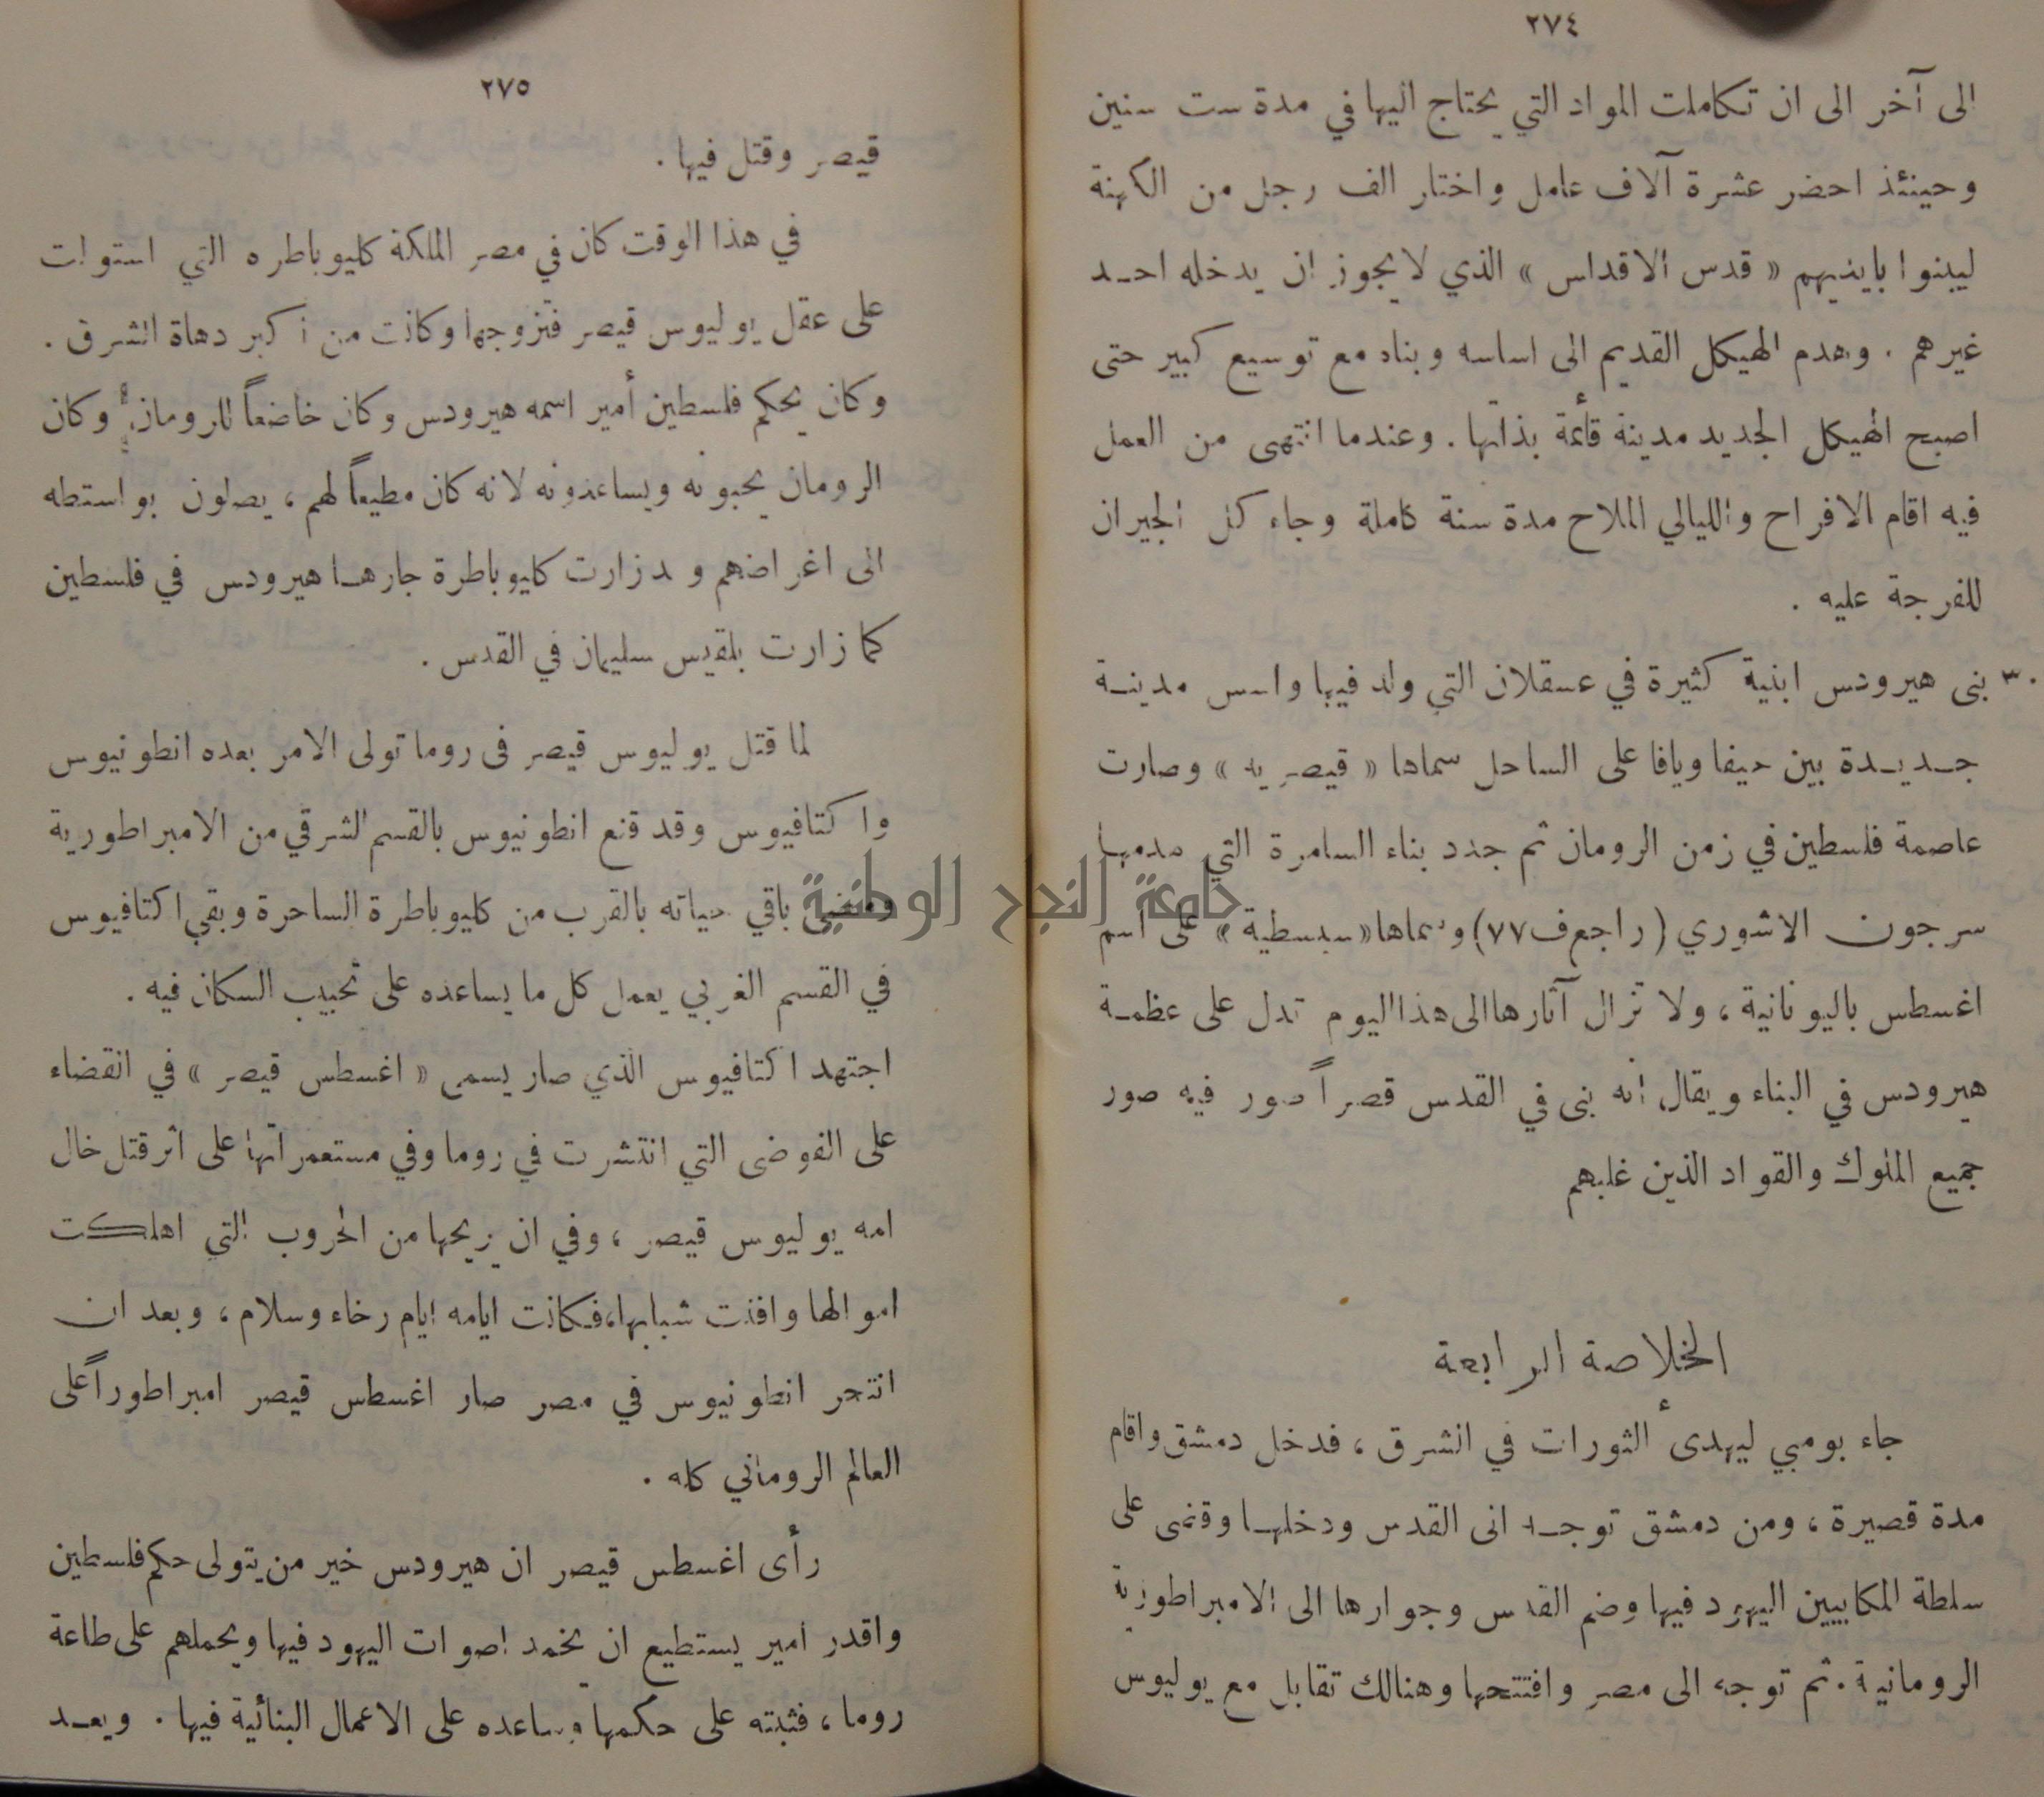 ٢٧٤
الى آخر الى ان تكاملت المواد التي يحتاج اليها في مدة ست سنين
وحينئذ احضر عشرة آلاف عامل واختار الف رجل من الكهنة
ليبنوا بايديهم « قدس الاقداس » الذي لا يجوز ان يدخله احد
غيرهم . وهدم الهيكل القديم الى اساسه وبناه مع توسيع كبير حتى
اصبح الهيكل الجديد مدينة قائمة بذاتها . وعندما انتهى من العمل
فيه اقام الافراح والليالي الملاح مدة سنة كاملة وجاء كل الجيران
للفرجة عليه .
٣٠ بنى هيرودس ابنية كثيرة في عسقلان التي ولد فيها واسس مدينة
جديدة بين حيفا ويافا على الساحل سماها « قيصرية » وصارت
عاصمة فلسطين في زمن الرومان ثم جدد بناء السامرة التي هدمها
سرجون الاشوري ( راجع ف ٧٧ ) وسماها « سبسطية » على اسم
اغسطس باليونانية ، ولا تزال آثارها الى هذا اليوم تدل على عظمة
هيرودس في البناء ويقال انه بنى في القدس قصراً صور فيه صور
جميع الملوك والقواد الذين غلبهم
الخلاصة الرابعة
جاء بومبي ليهدىء الثورات في الشرق ، فدخل دمشق واقام
مدة قصيرة ، ومن دمشق توجه الى القدس ودخلها وقضى على
سلطة المكابيين اليهود فيها وضم القدس وجوارها الى الامبراطورية
الرومانية . ثم توجه الى مصر وافتتحها وهنالك تقابل مع يوليوس
٢٧٥
قيصر وقتل فيها .
في هذا الوقت كان في مصر الملكة كليوباطره التي استولت
على عقل يوليوس قيصر فتزوجها وكانت من اكبر دهاة الشرق .
وكان يحكم فلسطين أمير اسمه هيرودس وكان خاضعاً للرومان ، وكان
الرومان يحبونه ويساعدونه لانه كان مطيعاً لهم ، يصلون بواستطه
الى اغراضهم و د زارت كليوباطرة جارها هيرودس في فلسطين
كما زارت بلقيس سليمان في القدس .
لما قتل يوليوس قيصر في روما تولى الامر بعده انطونيوس
واكتافيوس وقد قنع انطونيوس بالقسم الشرقي من الامبراطورية
ومضى باقي حياته بالقرب من كليوباطرة الساحرة وبقي اكتافيوس
في القسم الغربي يعمل كل ما يساعده على تحبيب السكان فيه .
اجتهد اكتافيوس الذي صار يسمى « اغسطس قيصر » في انقضاء
على الفوضى التي انتشرت في روما وفي مستعمراتها على اثر قتل خال
امه يوليوس قيصر ، وفي ان يريحها من الحروب التي اهلكت
اموالها وافنت شبابها ، فكانت ايامه ايام رخاء وسلام ، وبعد ان
انتحر انطونيوس في مصر صار اغسطس قيصر امبراطوراً على
العالم الروماني كله .
رأى اغسطس قيصر ان هيرودس خير من يتولى حكم فلسطين
واقدر امير يستطيع ان يخمد اصوات اليهود فيها ويحملهم على طاعة
روما ، فثبته على حكمها وساعده على الاعمال البنائية فيها . ويعد
جامعة النجاح الوطنية